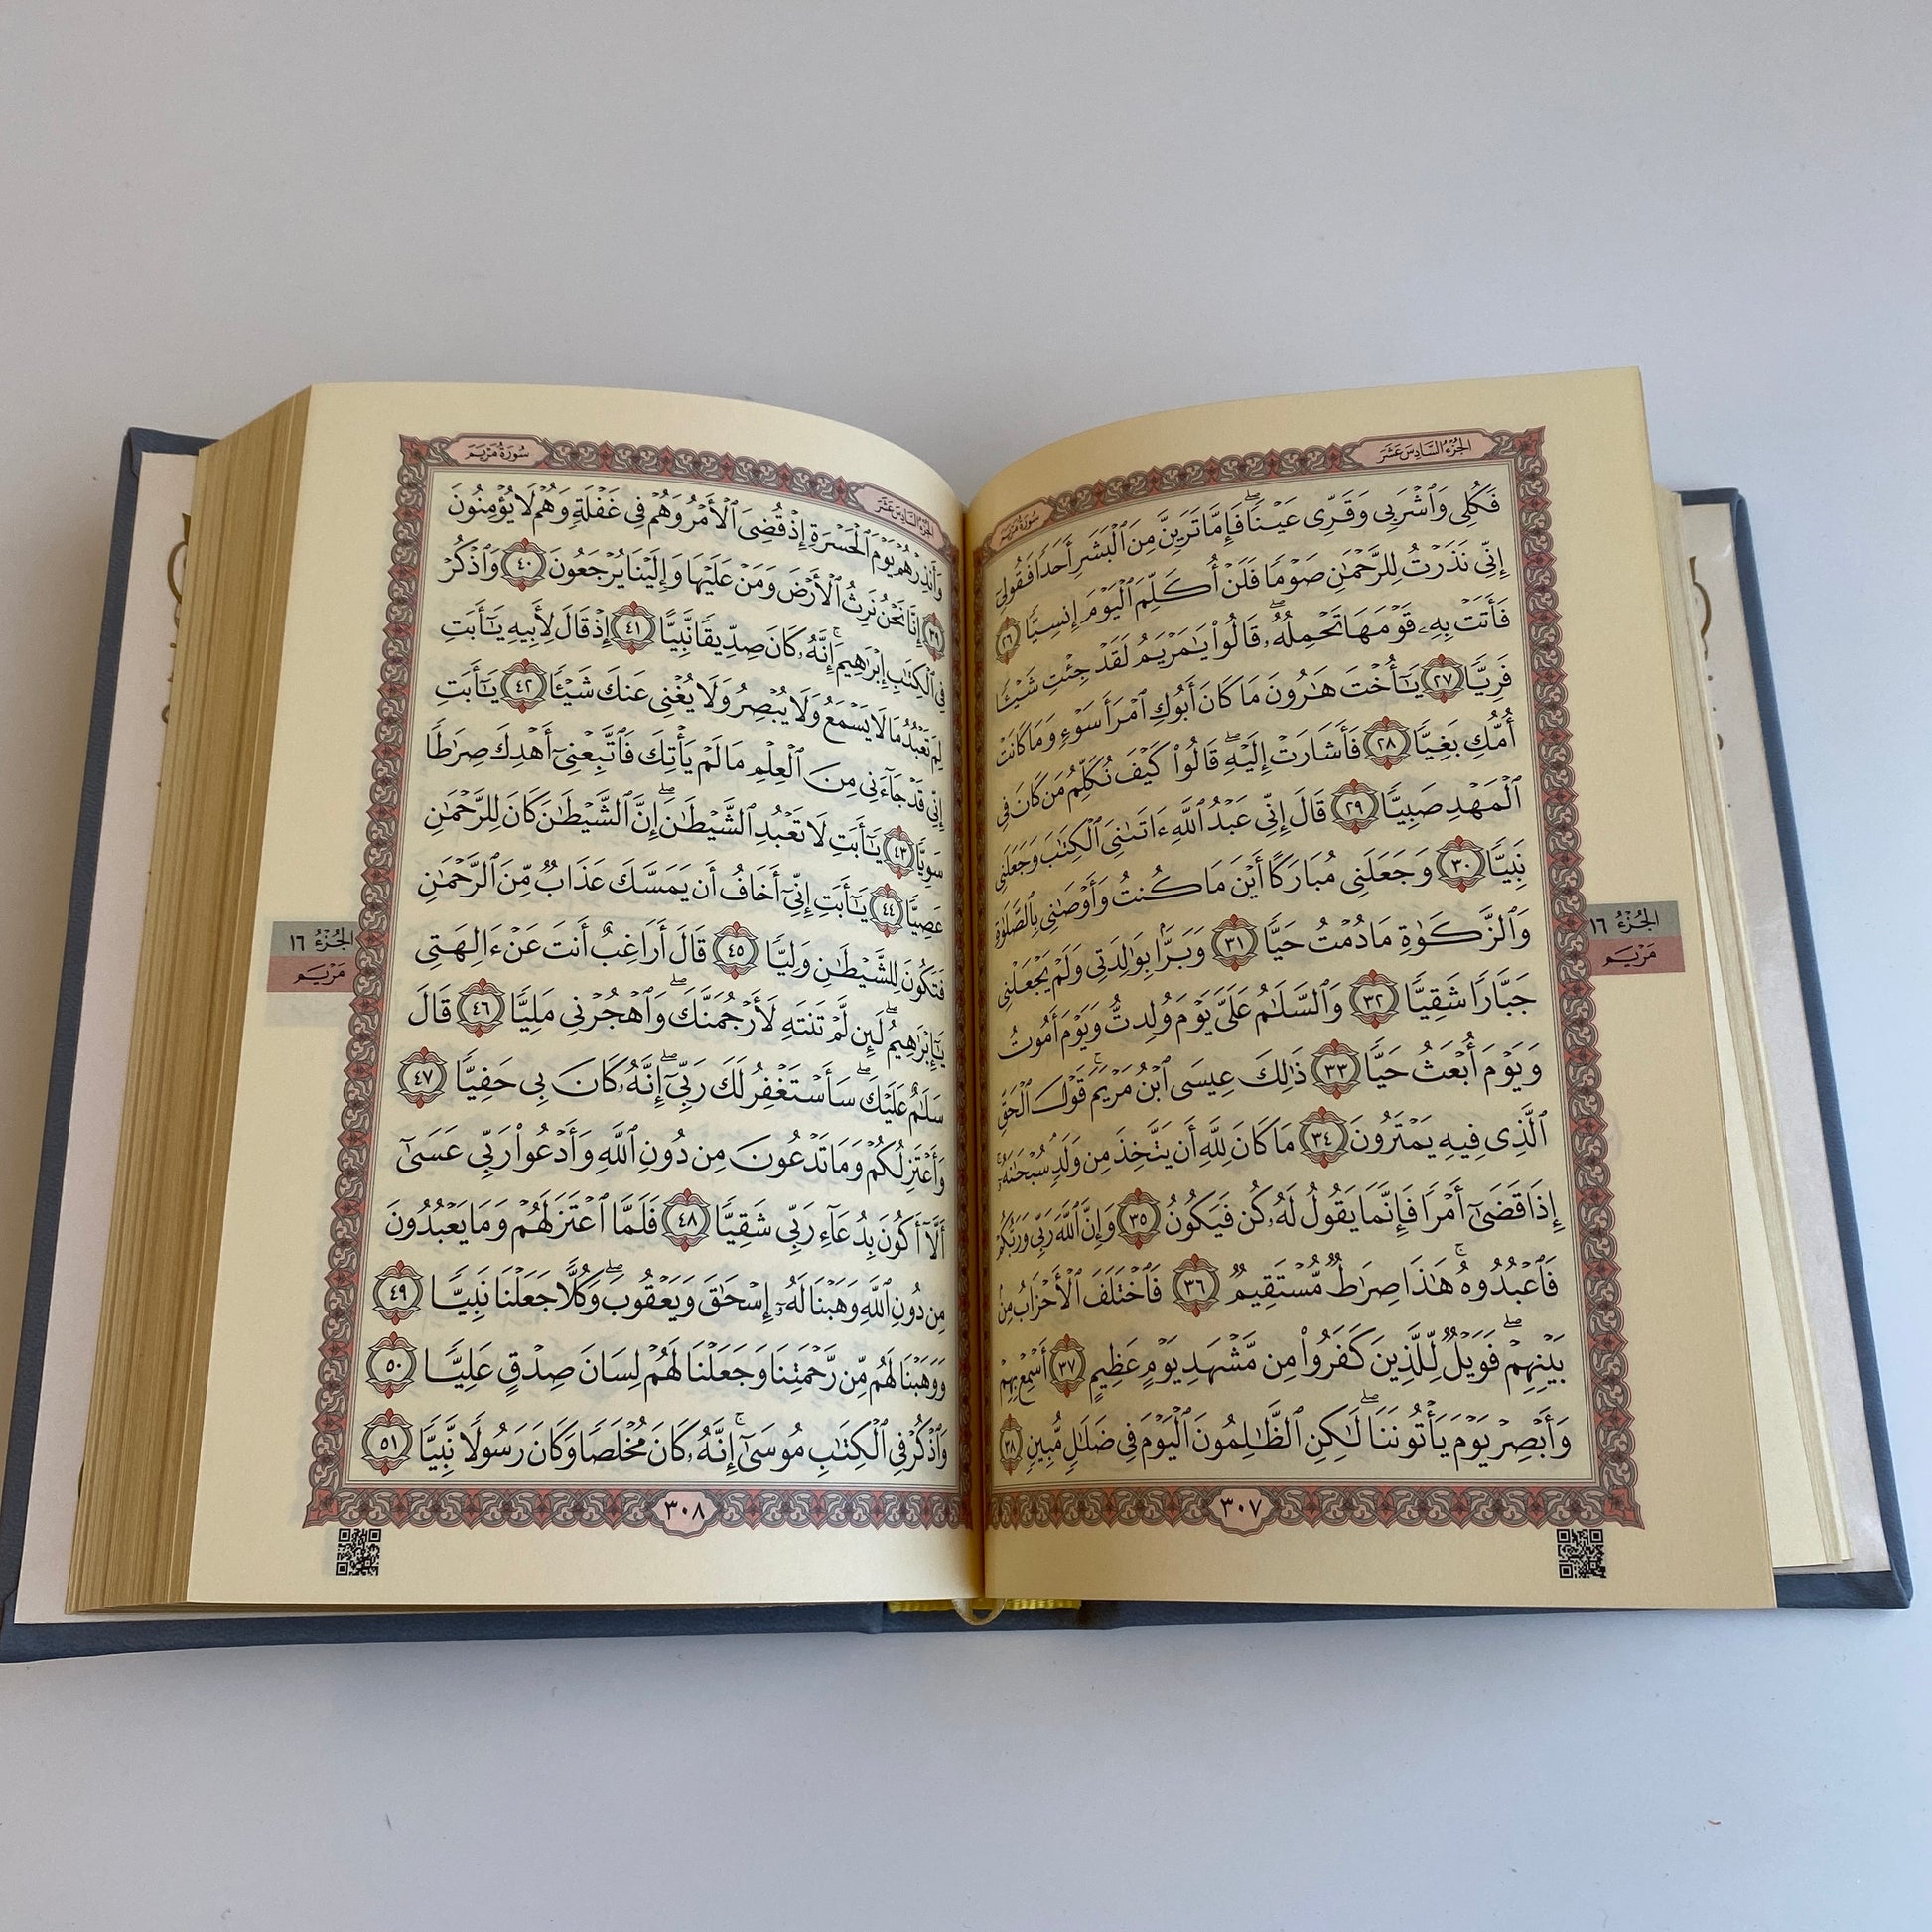 الجزء السادس عشر
سورة مريم
فَكُلِى وَٱشْرَبِى وَقَرِّى عَيْنًاۖ فَإِمَّا تَرَيِنَّ مِنَ ٱلْبَشَرِ أَحَدًا فَقُولِىٓ
إِنِّى نَذَرْتُ لِلرَّحْمَٰنِ صَوْمًا فَلَنْ أُكَلِّمَ ٱلْيَوْمَ إِنسِيًّا ٢٦
فَأَتَتْ بِهِۦ قَوْمَهَا تَحْمِلُهُۥۖ قَالُوا۟ يَٰمَرْيَمُ لَقَدْ جِئْتِ شَيْـًٔا
فَرِيًّا ٢٧ يَٰٓأُخْتَ هَٰرُونَ مَا كَانَ أَبُوكِ ٱمْرَأَ سَوْءٍ وَمَا كَانَتْ
أُمُّكِ بَغِيًّا ٢٨ فَأَشَارَتْ إِلَيْهِۖ قَالُوا۟ كَيْفَ نُكَلِّمُ مَن كَانَ فِى
ٱلْمَهْدِ صَبِيًّا ٢٩ قَالَ إِنِّى عَبْدُ ٱللَّهِ ءَاتَىٰنِىَ ٱلْكِتَٰبَ وَجَعَلَنِى
نَبِيًّا ٣٠ وَجَعَلَنِى مُبَارَكًا أَيْنَ مَا كُنتُ وَأَوْصَٰنِى بِٱلصَّلَوٰةِ
وَٱلزَّكَوٰةِ مَا دُمْتُ حَيًّا ٣١ وَبَرًّۢا بِوَٰلِدَتِى وَلَمْ يَجْعَلْنِى
جَبَّارًا شَقِيًّا ٣٢ وَٱلسَّلَٰمُ عَلَىَّ يَوْمَ وُلِدتُّ وَيَوْمَ أَمُوتُ
وَيَوْمَ أُبْعَثُ حَيًّا ٣٣ ذَٰلِكَ عِيسَى ٱبْنُ مَرْيَمَۚ قَوْلَ ٱلْحَقِّ
ٱلَّذِى فِيهِ يَمْتَرُونَ ٣٤ مَا كَانَ لِلَّهِ أَن يَتَّخِذَ مِن وَلَدٍۖ سُبْحَٰنَهُۥٓۚ
إِذَا قَضَىٰٓ أَمْرًا فَإِنَّمَا يَقُولُ لَهُۥ كُن فَيَكُونُ ٣٥ وَإِنَّ ٱللَّهَ رَبِّى وَرَبُّكُمْ
فَٱعْبُدُوهُۚ هَٰذَا صِرَٰطٌ مُّسْتَقِيمٌ ٣٦ فَٱخْتَلَفَ ٱلْأَحْزَابُ مِنۢ
بَيْنِهِمْۖ فَوَيْلٌ لِّلَّذِينَ كَفَرُوا۟ مِن مَّشْهَدِ يَوْمٍ عَظِيمٍ ٣٧ أَسْمِعْ بِهِمْ
وَأَبْصِرْ يَوْمَ يَأْتُونَنَاۖ لَٰكِنِ ٱلظَّٰلِمُونَ ٱلْيَوْمَ فِى ضَلَٰلٍ مُّبِينٍ ٣٨
٣٠٧
الجزء ١٦
مريم
الجزء السادس عشر
سورة مريم
وَأَنذِرْهُمْ يَوْمَ ٱلْحَسْرَةِ إِذْ قُضِىَ ٱلْأَمْرُ وَهُمْ فِى غَفْلَةٍ وَهُمْ لَا يُؤْمِنُونَ
٣٩ إِنَّا نَحْنُ نَرِثُ ٱلْأَرْضَ وَمَنْ عَلَيْهَا وَإِلَيْنَا يُرْجَعُونَ ٤٠ وَٱذْكُرْ
فِى ٱلْكِتَٰبِ إِبْرَٰهِيمَۚ إِنَّهُۥ كَانَ صِدِّيقًا نَّبِيًّا ٤١ إِذْ قَالَ لِأَبِيهِ يَٰٓأَبَتِ
لِمَ تَعْبُدُ مَا لَا يَسْمَعُ وَلَا يُبْصِرُ وَلَا يُغْنِى عَنكَ شَيْـًٔا ٤٢ يَٰٓأَبَتِ
إِنِّى قَدْ جَآءَنِى مِنَ ٱلْعِلْمِ مَا لَمْ يَأْتِكَ فَٱتَّبِعْنِىٓ أَهْدِكَ صِرَٰطًا
سَوِيًّا ٤٣ يَٰٓأَبَتِ لَا تَعْبُدِ ٱلشَّيْطَٰنَۖ إِنَّ ٱلشَّيْطَٰنَ كَانَ لِلرَّحْمَٰنِ
عَصِيًّا ٤٤ يَٰٓأَبَتِ إِنِّىٓ أَخَافُ أَن يَمَسَّكَ عَذَابٌ مِّنَ ٱلرَّحْمَٰنِ
فَتَكُونَ لِلشَّيْطَٰنِ وَلِيًّا ٤٥ قَالَ أَرَاغِبٌ أَنتَ عَنْ ءَالِهَتِى
يَٰٓإِبْرَٰهِيمُۖ لَئِن لَّمْ تَنتَهِ لَأَرْجُمَنَّكَۖ وَٱهْجُرْنِى مَلِيًّا ٤٦ قَالَ
سَلَٰمٌ عَلَيْكَۖ سَأَسْتَغْفِرُ لَكَ رَبِّىٓۖ إِنَّهُۥ كَانَ بِى حَفِيًّا ٤٧
وَأَعْتَزِلُكُمْ وَمَا تَدْعُونَ مِن دُونِ ٱللَّهِ وَأَدْعُوا۟ رَبِّى عَسَىٰٓ
أَلَّآ أَكُونَ بِدُعَآءِ رَبِّى شَقِيًّا ٤٨ فَلَمَّا ٱعْتَزَلَهُمْ وَمَا يَعْبُدُونَ
مِن دُونِ ٱللَّهِ وَهَبْنَا لَهُۥٓ إِسْحَٰقَ وَيَعْقُوبَۖ وَكُلًّا جَعَلْنَا نَبِيًّا ٤٩
وَوَهَبْنَا لَهُم مِّن رَّحْمَتِنَا وَجَعَلْنَا لَهُمْ لِسَانَ صِدْقٍ عَلِيًّا ٥٠
وَٱذْكُرْ فِى ٱلْكِتَٰبِ مُوسَىٰٓۚ إِنَّهُۥ كَانَ مُخْلَصًا وَكَانَ رَسُولًا نَّبِيًّا ٥١
٣٠٨
الجزء ١٦
مريم